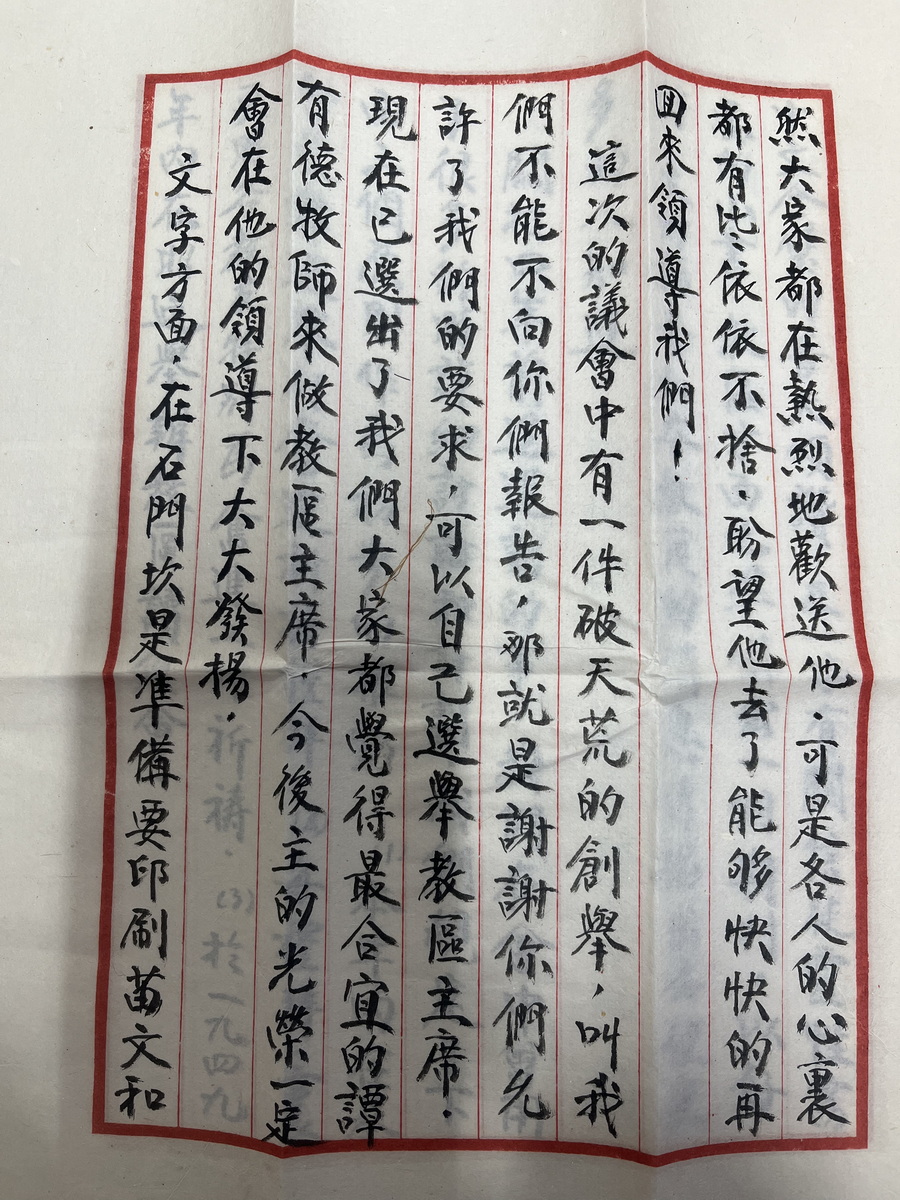 然大家都在熱烈地歡送他．可是各人的心裏
都有些依依不捨．盼望他去了能够快快的再
回來領導我們！
這次的議會中有一件破天荒的創舉，叫我
們不能不向你們報告，那就是謝謝你們允
許了我們的要求，可以自己選舉教區主席．
現在已選出了我們大家都覺得最合宜的譚
有德牧師來做教區主席．今後主的光榮一定
會在他的領導下大大發楊．
文字方面．在石門坎是準備要印刷苗文和